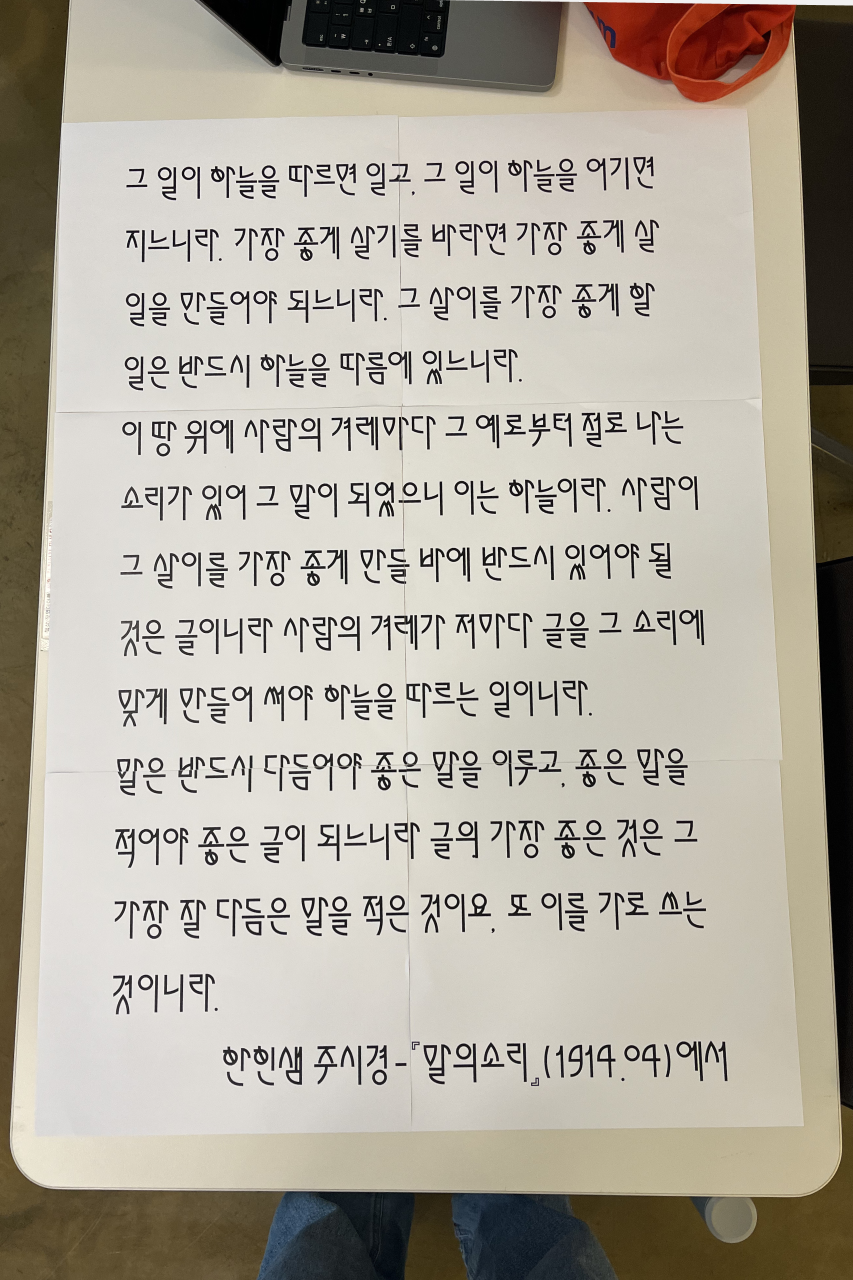 그 일이 하늘을 따르면 일고, 그 일이 하늘을 어기면
지느니라. 가장 좋게 살기를 바라면 가장 좋게 살
일을 만들어야 되느니라. 그 살이를 가장 좋게 할
일은 반드시 하늘을 따름에 있느니라.
이 땅 위에 사람의 겨레마다 그 예로부터 절로 나는
소리가 있어 그 말이 되었으니 이는 하늘이라. 사람이
그 살이를 가장 좋게 만들 바에 반드시 있어야 될
것은 글이니라 사람의 겨레가 저마다 글을 그 소리에
맞게 만들어 써야 하늘을 따르는 일이니라.
말은 반드시 다듬어야 좋은 말을 이루고, 좋은 말을
적어야 좋은 글이 되느니라 글의 가장 좋은 것은 그
가장 잘 다듬은 말을 적은 것이요, 또 이를 가로 쓰는
것이니라.
한힌샘 주시경-『말의소리』(1914.04)에서